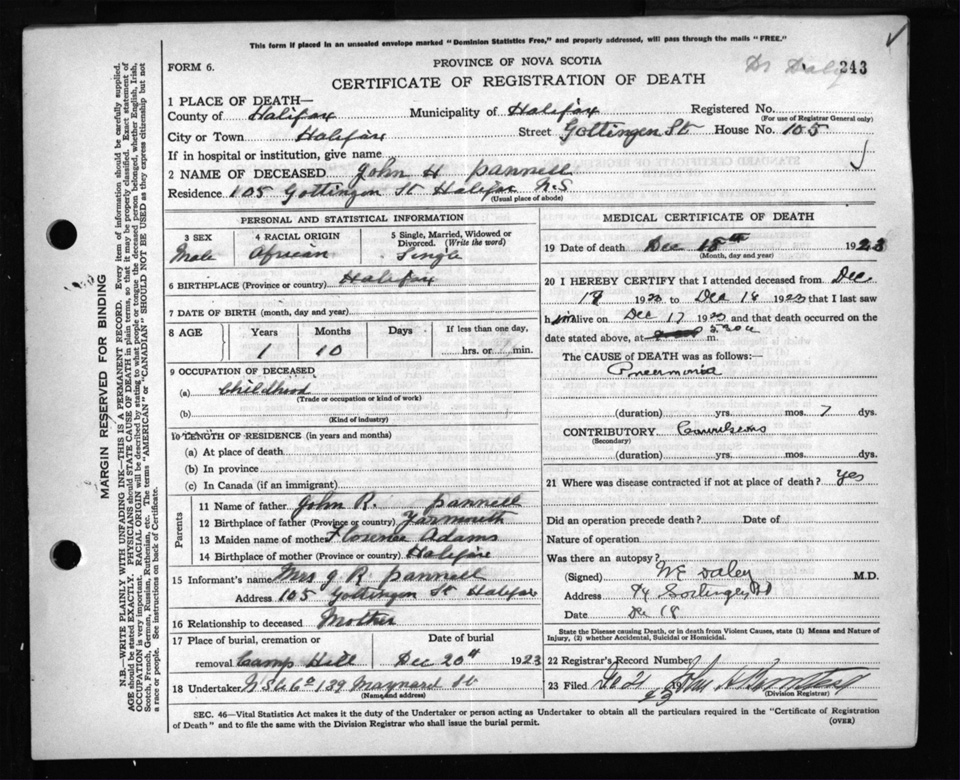 This form if placed in an unsealed envelope marked "Dominion Statistics Free," and properly addressed, will pass through the mails "FREE."
FORM 6.
PROVINCE OF NOVA SCOTIA
Dr Daley 243
CERTIFICATE OF REGISTRATION OF DEATH
1 PLACE OF DEATH—
County of Halifax Municipality of Halifax Registered No.
(For use of Registrar General only)
City or Town Halifax Street Gottingen St House No. 105
If in hospital or institution, give name
2 NAME OF DECEASED John H Pannell
Residence 105 Gottingen St Halifax N.S
(Usual place of abode)
PERSONAL AND STATISTICAL INFORMATION
3 SEX
Male
4 RACIAL ORIGIN
African
5 Single, Married, Widowed or Divorced. (Write the word)
Single
6 BIRTHPLACE (Province or country) Halifax
7 DATE OF BIRTH (month, day and year)
8 AGE Years Months Days If less than one day,
1 10 hrs. or min.
9 OCCUPATION OF DECEASED
(a) Childhood
(Trade or occupation or kind of work)
(b)
(Kind of industry)
10 LENGTH OF RESIDENCE (in years and months)
(a) At place of death
(b) In province
(c) In Canada (if an immigrant)
Parents
11 Name of father John R. Pannell
12 Birthplace of father (Province or country) Yarmouth
13 Maiden name of mother Florence Adams
14 Birthplace of mother (Province or country) Halifax
15 Informant's name Mrs J R Pannell
Address 105 Gottingen St Halifax
16 Relationship to deceased Mother
17 Place of burial, cremation or Date of burial
removal Camp Hill Dec 20th 1923
18 Undertaker 139 Maynard St
(Name and address)
MEDICAL CERTIFICATE OF DEATH
19 Date of death Dec 18th 1923
(Month, day and year)
20 I HEREBY CERTIFY that I attended deceased from Dec
1923 to Dec 18 1923 that I last saw
him alive on Dec 17 1923 and that death occurred on the
date stated above, at m.
The CAUSE of DEATH was as follows:—
Pneumonia
(duration) yrs. mos. 7 dys.
CONTRIBUTORY Convulsions
(Secondary)
(duration) yrs. mos. dys.
21 Where was disease contracted if not at place of death? Yes
Did an operation precede death? Date of
Nature of operation
Was there an autopsy?
(Signed) Daley M.D.
Address
Date De 18
State the Disease causing Death, or in death from Violent Causes, state (1) Means and Nature of
Injury, (2) whether Accidental, Suicidal or Homicidal.
22 Registrar's Record Number
23 Filed 19 23 John
(Division Registrar)
SEC. 46—Vital Statistics Act makes it the duty of the Undertaker or person acting as Undertaker to obtain all the particulars required in the "Certificate of Registration
of Death" and to file the same with the Division Registrar who shall issue the burial permit. (OVER)
MARGIN RESERVED FOR BINDING
N.B.—WRITE PLAINLY WITH UNFADING INK—THIS IS A PERMANENT RECORD. Every item of information should be carefully supplied.
AGE should be stated EXACTLY. PHYSICIANS should STATE CAUSE OF DEATH in plain terms, so that it may be properly classified. Exact statement of
OCCUPATION is very important. RACIAL ORIGIN will be described by stating to what people or tongue the deceased person belonged, whether English, Irish,
Scotch, French, German, Russian, Ruthenian, etc. The terms "AMERICAN" or "CANADIAN" SHOULD NOT BE USED as they express citizenship but not
a race or people. See instructions on back of Certificate.